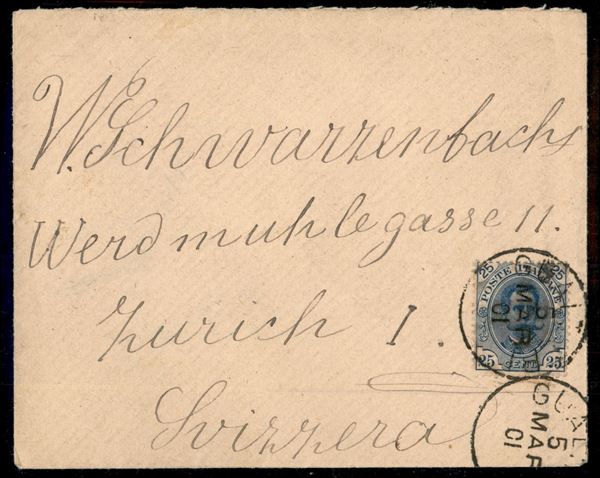 W. Schwarzenbachs
Werdmuhlegasse 11.
Zurich I.
Svizzera.
25 25
POSTE ITALIANE
25 CENT. 25
5
MAR
01
5
MAR
01